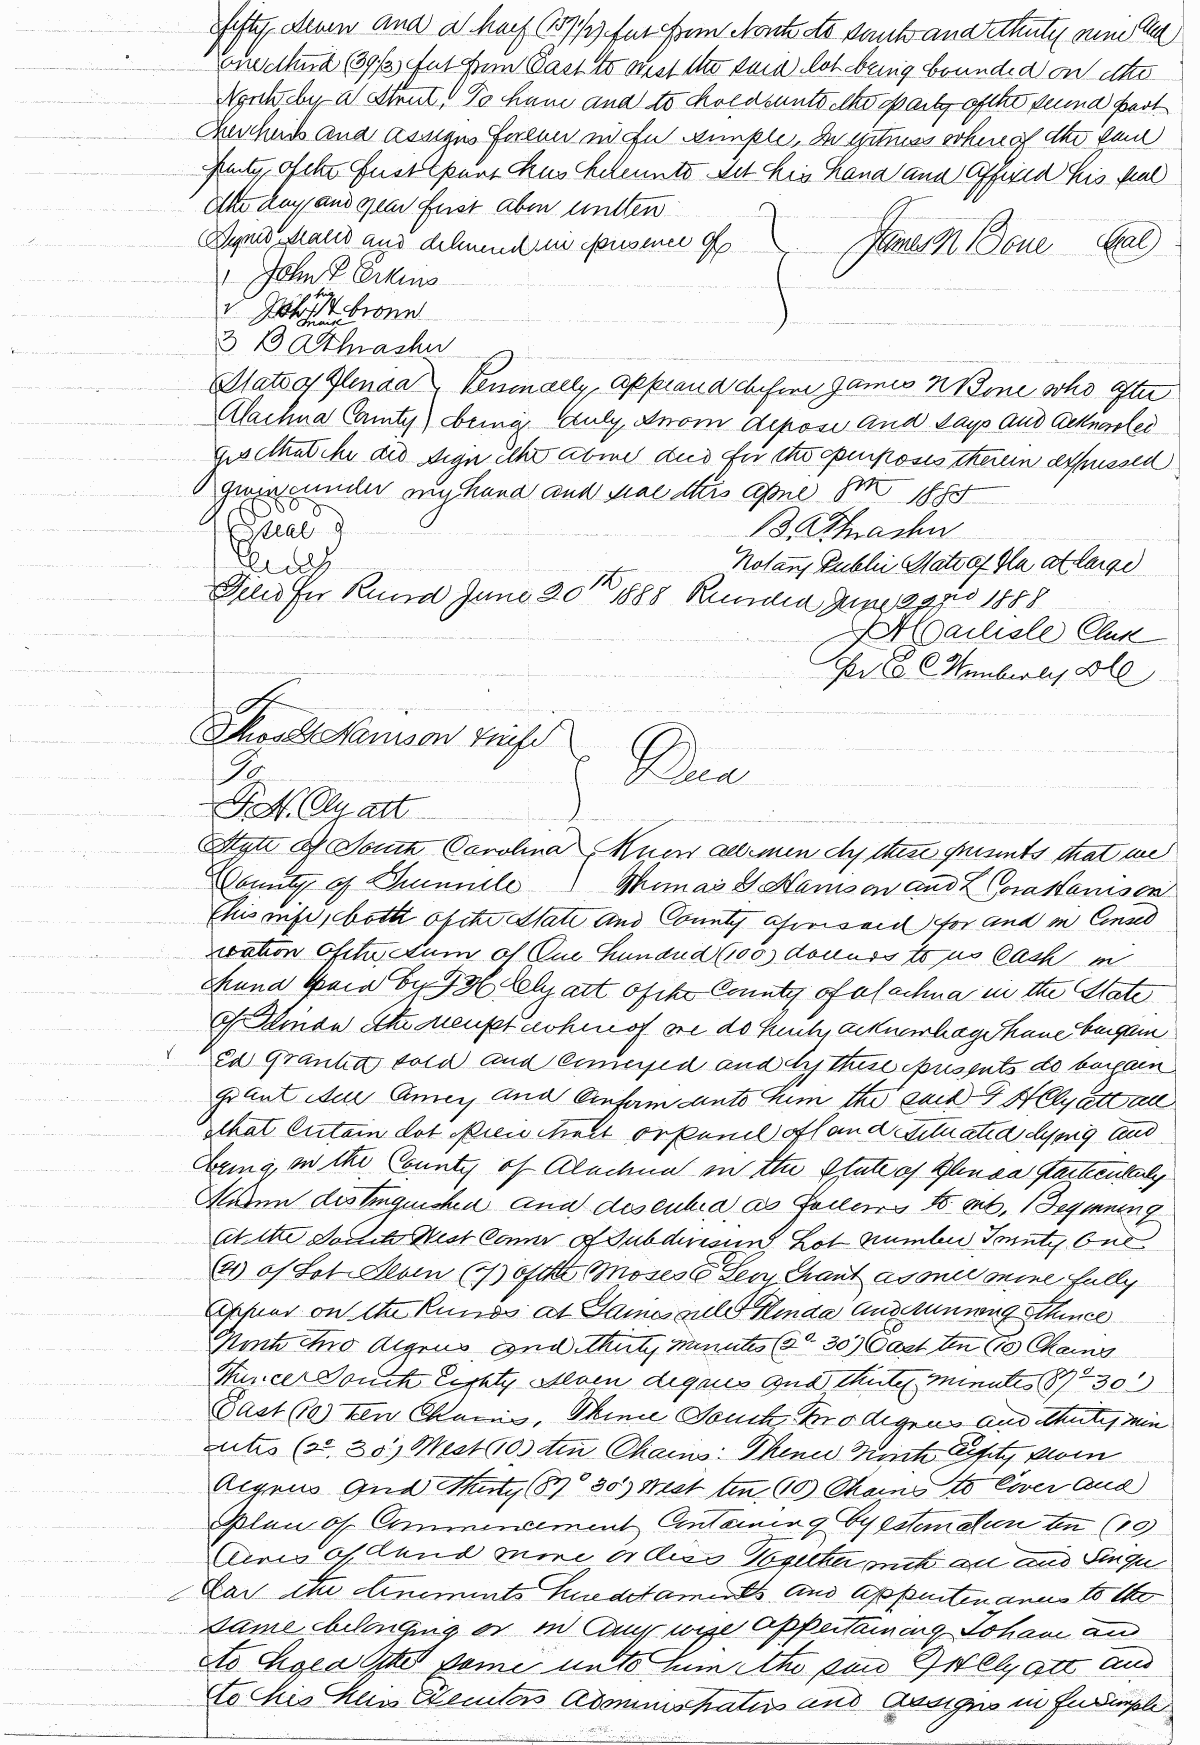 fifty seven and a half (57 1/2) feet from North to south and thirty nine and
one third (39 1/3) feet from East to west the said lot being bounded on the
North by a Street, To have and to hold unto the party of the second part
her heirs and assigns forever in fee simple, In witness whereof the said
party of the first part has hereunto set his hand and affixed his seal
the day and year first above written
Signed sealed and delivered in presence of James N Bone Seal
1 John P Erkins
2 his + brown mark
3 B A Thrasher
State of Florida } Personally appeared before James N Bone who after
Alachua County } being duly sworn depose and says and acknowled
ges that he did sign the above deed for the purposes therein expressed
given under my hand and seal this April 8th 1885
Seal B. A Thrasher
Notary Public State of Fla at large
Filed for Record June 20th 1888 Recorded June 22nd 1888
J A Carlisle Clerk
per E C Wimberley D C
Thos G Harrison & wife
To } Deed
F. H. Clyatt
State of South Carolina } Know all men by these presents that we
County of Greenville } Thomas G Harrison and L Cora Harrison
his wife, both of the State and County aforesaid for and in Consid
eration of the sum of One hundred (100) dollars to us Cash in
hand paid by F H Clyatt of the County of Alachua in the State
of Florida the receipt whereof we do hereby acknowledge have bargain
ed granted sold and conveyed and by these presents do bargain
grant sell Convey and Confirm unto him the said F H Clyatt all
that certain lot piece tract or parcel of land situated lying and
being in the County of Alachua in the State of Florida particularly
Known distinguished and described as follows to wit, Beginning
at the South West Corner of Subdivision Lot number Twenty One
(21) of Lot Seven (7) of the Moses E Levy Grant as will more fully
appear on the Records at Gainesville Florida and running thence
North two degrees and thirty minutes (2° 30') East ten (10) Chains
Thence South Eighty seven degrees and thirty minutes (87° 30')
East (10) ten Chains, Thence South Two degrees and thirty min
utes (2° 30') West (10) ten Chains: Thence North Eighty seven
degrees and thirty (87° 30') West ten (10) Chains to Cover and
place of Commencement Containing by estimation ten (10)
Acres of land more or less Together with all and Singu
lar the tenements hereditaments and appurtenances to the
same belonging or in any wise appertaining To have and
to hold the same unto him the said F H Clyatt and
to his heirs Executors administrators and assigns in fee simple